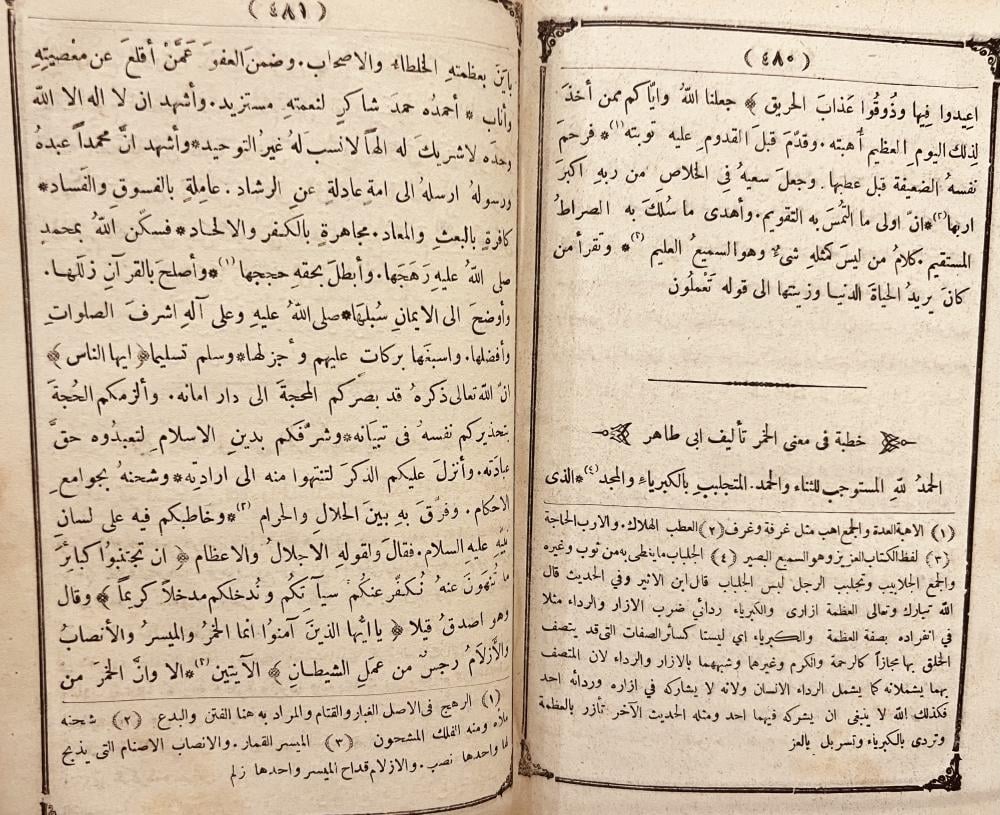 ( ٤٨٠ )
اعِيدوا فِيها وذُوقُوا عَذابَ الحريق ﴾ جعلنا اللّٰهُ وايّاكم ممن أخذَ
لِذلكَ اليومِ العظيمِ أُهبته. وقدَّمَ قبلَ القدومِ عليهِ توبته (١)* فرحمَ
نفسهُ الضعيفة قبل عطبها. وجعلَ سعيهُ فِى الخلاصِ من ربهِ اكبرَ
اربها (٢)* انّ اولى ما التُمسَ به التقويم. وأهدى ما سُلكَ به الصراطُ
المستقيم. كلامُ من ليسَ كمثلهِ شىءٌ وهو السميعُ العليم (٣)* وتقرأ من
كانَ يريدُ الحياةَ الدنيا وزينتها الى قوله تَعْملُون
خطبة فى معنى الخمر تأليف ابى طاهر
الحمدُ للّٰهِ المستوجبِ للثناءِ والحمد. المتجلببِ بالكبرياءِ والمجد (٤)* الذى
(١) الاهبة العدة والجمع اهب مثل غرفة وغرف (٢) العطب الهلاك. والارب الحاجة
(٣) لفظ الكتاب العزيز وهو السميع البصير (٤) الجلباب ما يتغطى به من ثوب وغيره
والجمع الجلابيب وتجلبب الرجل لبس الجلباب قال ابن الاثير وفى الحديث قال
اللّٰه تبارك وتعالى العظمة ازارى والكبرياء ردائي ضرب الازار والرداء مثلا
فى انفراده بصفة العظمة والكبرياء اي ليستا كسائر الصفات التى قد يتصف
الخلق بها مجازاً كالرحمة والكرم وغيرها وشبههما بالازار والرداء لان المتصف
بهما يشملانه كما يشمل الرداء الانسان ولانه لا يشاركه فى ازاره وردائه احد
فكذلك اللّٰه لا ينبغى ان يشركه فيهما احد ومثله الحديث الآخر تأزر بالعظمة
وتردى بالكبرياء وتسربل بالعز
( ٤٨١ )
باينَ بعظمتهِ الخلطاء والاصحاب. وضمنَ العفوَ عَمَّنْ أقلعَ عن معْصيتِهِ
وأناب * أحمدُه حمدَ شاكرٍ لنعمتهِ مستزيد. وأشهد ان لا اله الا اللّٰه
وحدَه لاشريكَ له الهاً لانسبَ لهُ غيرُ التوحيد* وأشهد انَّ محمداً عبدهُ
ورسولهُ ارسلهُ الى امةٍ عادلةٍ عنِ الرشاد. عاملِةٍ بالفسوقِ والفَساد*
كافرةٍ بالبعثِ والمعاد. مجاهرةٍ بالكفرِ والالحاد* فسكّن اللّٰهُ بمحمدٍ
صلى اللّٰهُ عليهِ رَهَجَها. وأبطلَ بحقهِ حججها (١)* وأصلحَ بالقرآنِ زلَلَها.
وأوضحَ الى الايمانِ سُبلَها* صلى اللّٰهُ عليهِ وعلى آلهِ اشرفَ الصلواتِ
وأفضلها. واسبغَها بركاتٍ عليهم وأجزلها* وسلم تسليما ﴿ ايها الناس ﴾
انّ اللّٰه تعالى ذكرهُ قد بصَّركم المحجةَ الى دار امانه. وألزمكم الحُجةَ
بتحذيركم نفسهُ فى تبيَانه* وشرَّفكم بدينِ الاسلامِ لتعبدُوه حقَّ
عبادَته. وأنزلَ عليكم الذكرَ لتنتهوا منه الى ارادتِه* وشحنهُ بجوامعِ
الاحكام. وفرَّقَ بهِ بينَ الحلالِ والحرام (٢)* وخاطبكم فيه على لسانِ
نبيِّهِ عليه السلام. فقالَ ولقولهِ الاجلالُ والاعظام ﴿ ان تجتنبُوا كبائرَ
ما تُنهَونَ عنهُ نُكفّر عنكُم سيآتكُم ونُدخلكم مدخلاً كريماً ﴾ وقال
وهو اصدقُ قيلا ﴿ يا ايُّها الذينَ آمنُوا انما الخمرُ والميسرُ والأنصابُ
والأزلامُ رجسٌ من عملِ الشيطانِ ﴾ الآيتين (٣)* الا وانَّ الخمرَ من
(١) الرهج فى الاصل الغبار والقتام والمراد به هنا الفتن والبدع (٢) شحنه
ملأه ومنه الفلك المشحون (٣) الميسر القمار. والانصاب الاصنام التى يذبح
لها واحدها نصب. والازلام قداح الميسر واحدها زلم